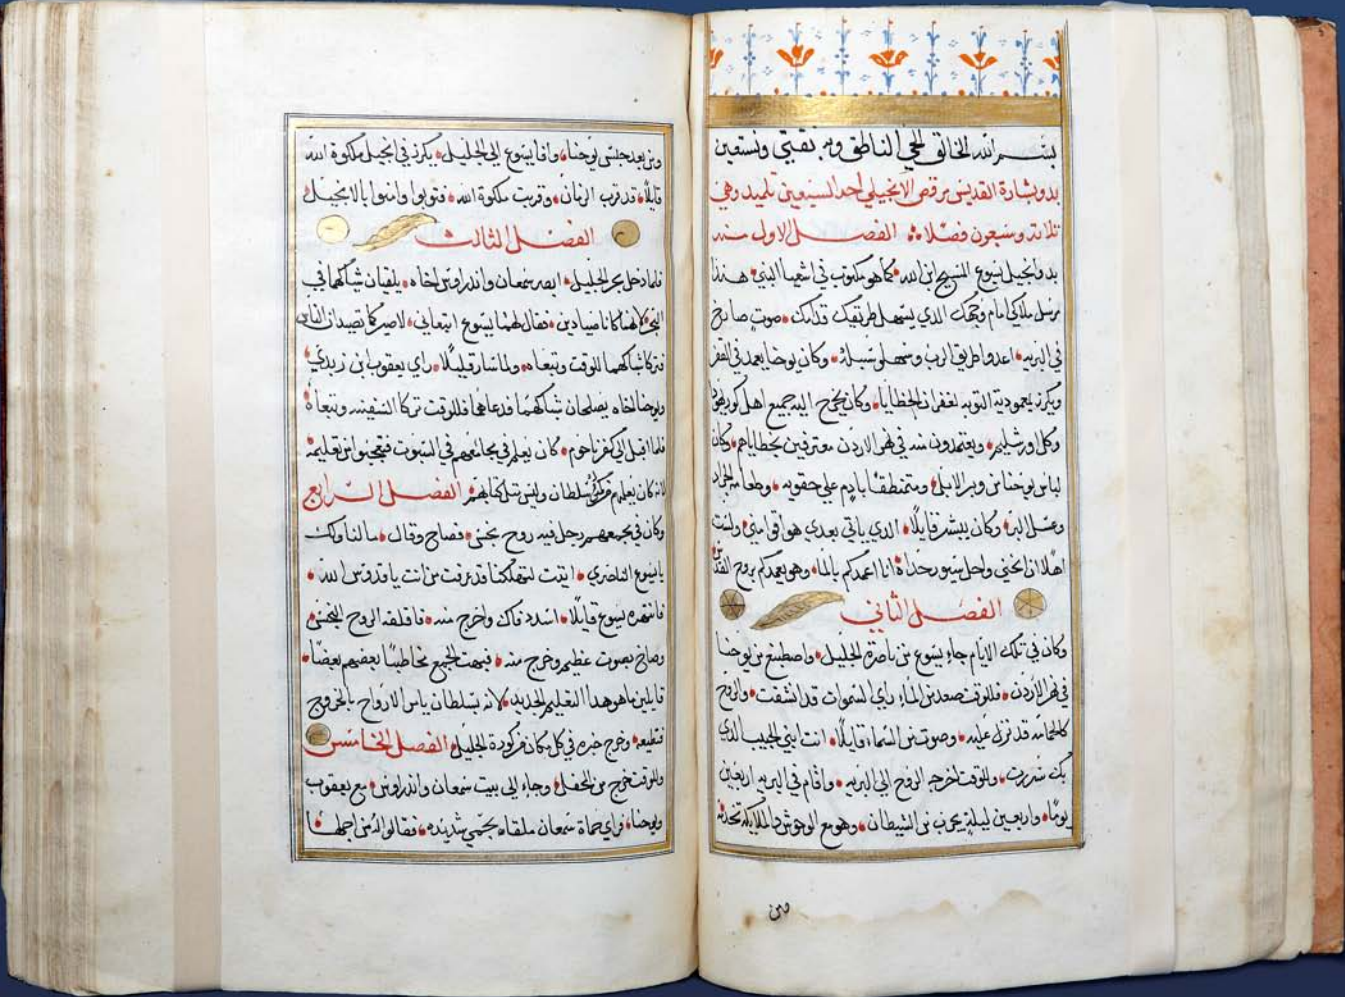 بسم الله الخالق الحي الناطق وبه نقتي ونستعين
بدو بشارة القديس مرقص الانجيلي احد السبعين تلميد وهي
تلاته وسبعون فصلا الفصل الاول منه
بدو انجيل يسوع المسيح ابن الله كما هو مكتوب في اشعيا النبي هندا
مرسل ملاكي امام وجهك الدي يسهل طريقك قدامك صوت صارخ
في البريه اعدوا طريق الرب وسهلوا سبله وكان يوحنا يعمد في القفر
ويكرز بمعمودية التوبه لغفران الخطايا وكان يخرج اليه جميع اهل كورة يهودا
وكل اورشليم ويعتمدون منه في نهر الاردن معترفين بخطاياهم وكان
لباس يوحنا من وبر الابل ومتمنطقا بادم علي حقويه وطعامه الجراد
وعسل البر وكان يبشر قايلا الدي ياتي بعدي هو اقوا مني ولست
اهلا ان انحني واحل سيور حداه انا اعمدكم بالما وهو يعمدكم بروح القدس
الفصل الثاني
وكان في تلك الايام جاء يسوع من ناصرة الجليل واصطبغ من يوحنا
في نهر الاردن فللوقت صعد من الماء راي السموات قد انشقت والروح
كالحمامه قد نزل عليه وصوت من السماء قايلا انت ابني الحبيب الدي
بك سررت وللوقت اخرجه الروح الي البريه واقام في البريه اربعين
يوما واربعين ليلة يجرب من الشيطان وهو مع الوحوش والملايكه تخدمه
ومن
ومن بعد حبس يوحنا وافا يسوع الي الجليل يكرز في انجيل ملكوة الله
قايلا قد قرب الزمان وقربت ملكوة الله فتوبوا وامنوا بالانجيل
الفصل الثالث
فلما دخل بحر الجليل ابصر سمعان واندراوس اخاه يلقيان شباكهما في
البحر لانهما كانا صيادين فقال لهما يسوع اتبعاني لاصيركما تصيدان الناس
فتركا شباكهما للوقت وتبعاه ولما سار قليلا راي يعقوب ابن زبدي
ويوحنا اخاه يصلحان شباكهما فدعاهما فللوقت تركا السفينه وتبعاه
فلما اقبل الي كفرناحوم كان يعلم في مجامعهم في السبوت فتعجبوا من تعليمه
لانه كان يعلمهم كمن له سلطان وليس مثل كتابهم الفصل الرابع
وكان في مجمعهم رجل فيه روح نجس فصاح وقال ما لنا ولك
يا يسوع الناصري اتيت لتهلكنا قد عرفت من انت يا قدوس الله
فانتهره يسوع قايلا اسدد فاك واخرج منه فاقلقه الروح النجس
وصاح بصوت عظيم وخرج منه فبهت الجمع مخاطبا بعضهم بعضا
قايلين ما هو هدا التعليم الجديد لانه بسلطان يامر الارواح بالخروج
فتطيعه وخرج خبره في كل مكان من كورة الجليل الفصل الخامس
وللوقت خرج من المحفل وجاء الي بيت سمعان واندراوس مع يعقوب
ويوحنا وراي حماة سمعان ملقاه بحمي شديده فقالوا له من اجلها